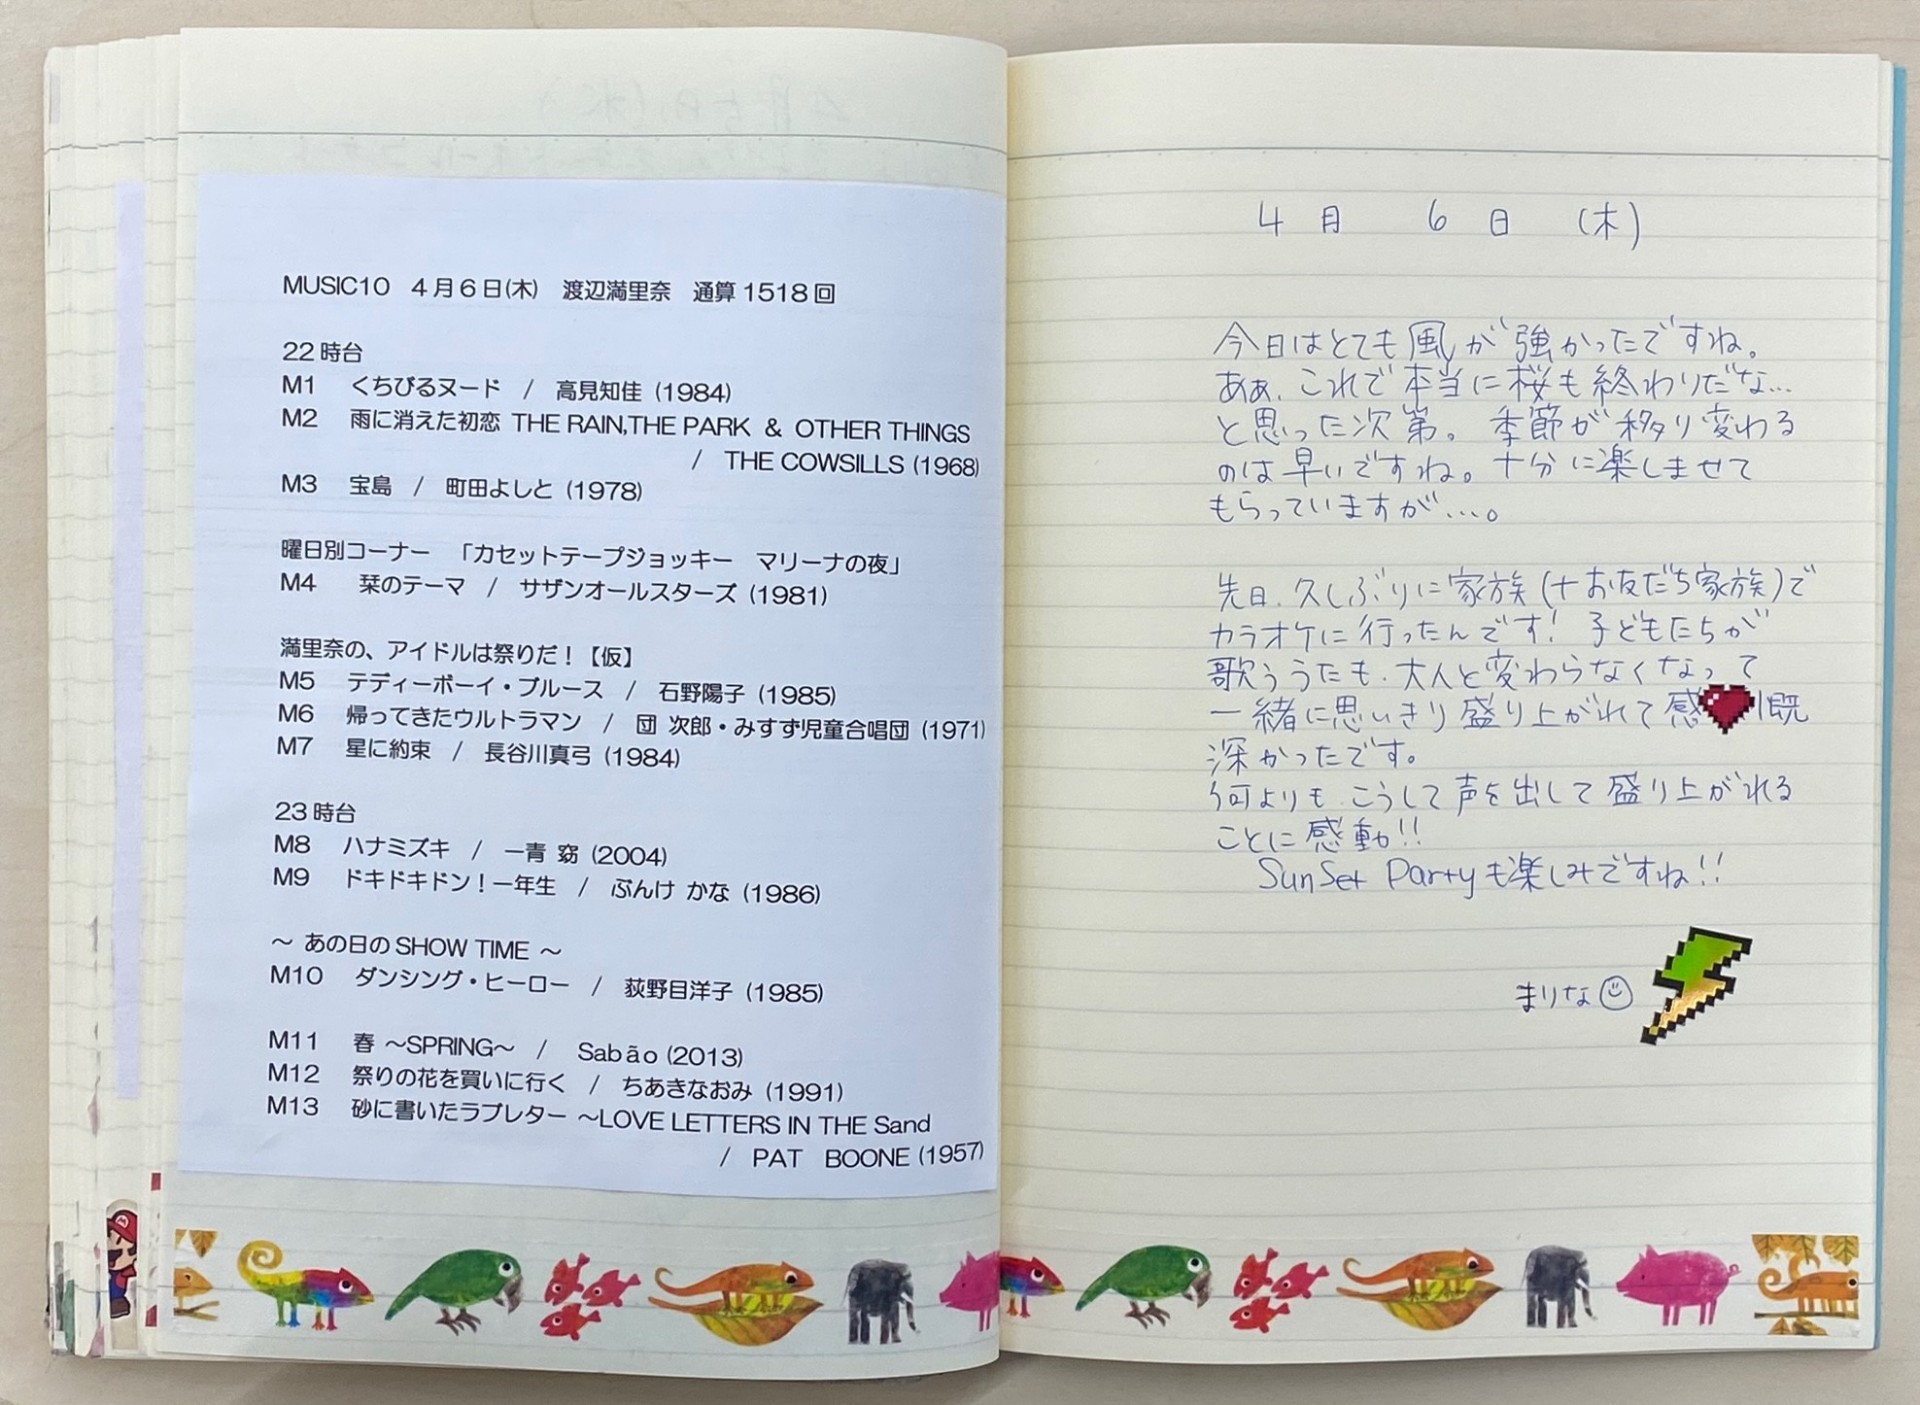 MUSIC10 4月6日(木) 渡辺満里奈 通算1518回
22時台
M1 くちびるヌード / 高見知佳 (1984)
M2 雨に消えた初恋 THE RAIN,THE PARK & OTHER THINGS
/ THE COWSILLS (1968)
M3 宝島 / 町田よしと (1978)
曜日別コーナー 「カセットテープジョッキー マリーナの夜」
M4 栞のテーマ / サザンオールスターズ (1981)
満里奈の、アイドルは祭りだ！【仮】
M5 テディーボーイ・ブルース / 石野陽子 (1985)
M6 帰ってきたウルトラマン / 団 次郎・みすず児童合唱団 (1971)
M7 星に約束 / 長谷川真弓 (1984)
23時台
M8 ハナミズキ / 一青 窈 (2004)
M9 ドキドキドン！一年生 / ぶんけ かな (1986)
～ あの日のSHOW TIME ～
M10 ダンシング・ヒーロー / 荻野目洋子 (1985)
M11 春 ～SPRING～ / Sabão (2013)
M12 祭りの花を買いに行く / ちあきなおみ (1991)
M13 砂に書いたラブレター ～LOVE LETTERS IN THE Sand
/ PAT BOONE (1957)
4月 6日 (木)
今日はとても風が強かったですね。
あぁ、これで本当に桜も終わりだな…
と思った次第。季節が移り変わる
のは早いですね。十分に楽しませて
もらっていますが…。
先日、久しぶりに家族(+お友だち家族)で
カラオケに行ったんです！子どもたちが
歌ううたも、大人と変わらなくなって
一緒に思いきり盛り上がれて感慨
深かったです。
何よりも、こうして声を出して盛り上がれる
ことに感動!!
SunSet Partyも楽しみですね!!
まりな